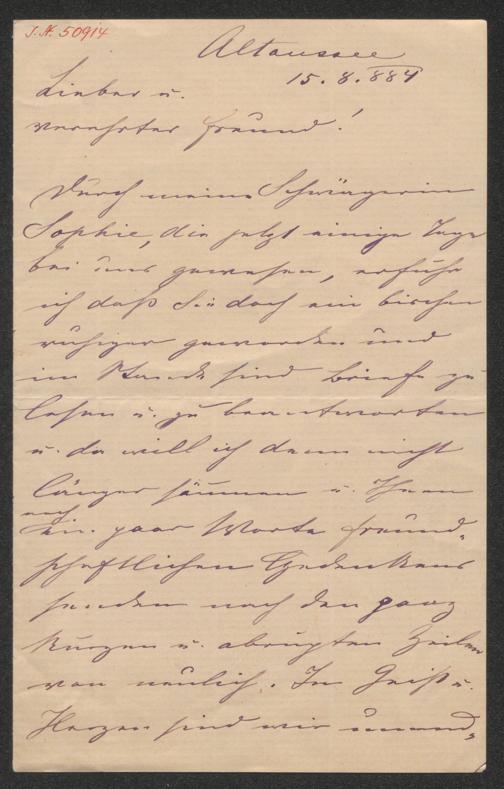 J. N. 50914
Altaussee
15. 8. 884
Lieber u.
verehrter Freund!
Durch meine Schwägerin
Sophie, die jetzt einige Tage
bei uns gewesen, erfuhr
ich daß Sie doch ein bischen
ruhiger geworden und
im Stande sind Briefe zu
lesen u. zu beantworten
u. da will ich denn nicht
länger säumen u. Ihnen
noch
ein paar Worte freund-
schaftlichen Gedenkens
senden nach den ganz
kurzen u. abrupten Zeilen
von neulich. In Geist u.
Herzen sind wir unend-